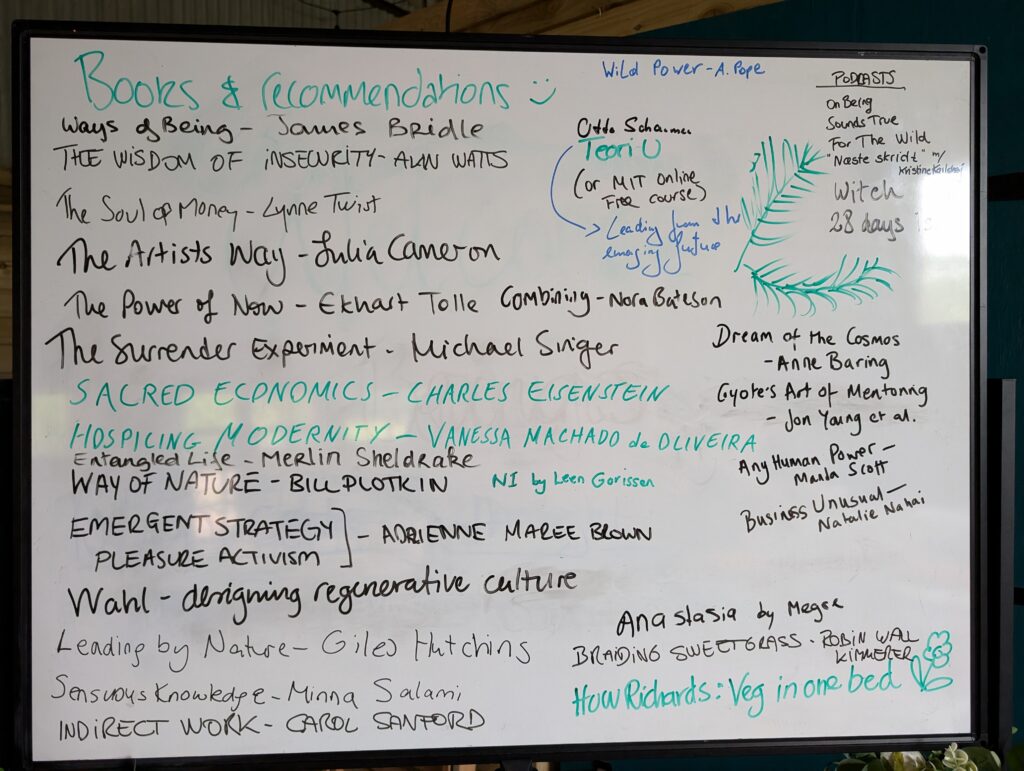 Books & recommendations
Ways of Being - James Bridle
THE WISDOM OF INSECURITY - ALAN WATTS
The Soul of Money - Lynne Twist
The Artists Way - Julia Cameron
The Power of Now - Ekhart Tolle
The Surrender Experiment - Michael Singer
SACRED ECONOMICS - CHARLES EISENSTEIN
HOSPICING MODERNITY - VANESSA MACHADO de OLIVEIRA
Entangled Life - Merlin Sheldrake
WAY OF NATURE - BILL PLOTKIN
NI by Leen Gorissen
EMERGENT STRATEGY
PLEASURE ACTIVISM
- ADRIENNE MAREE BROWN
Wahl - designing regenerative culture
Leading by Nature - Giles Hutchins
Sensuous Knowledge - Minna Salami
INDIRECT WORK - CAROL SANFORD
Wild Power - A. Pope
Otto Scharmer
Teori U
(or MIT online
Free course)
Leading from the
emerging future
Combining - Nora Bateson
PODCASTS
On Being
Sounds True
For The Wild
"Næste skridt" m/
Kristine
Witch
28 days
Dream of the Cosmos
- Anne Baring
Cyote's Art of Mentoring
- Jon Young et al.
Any Human Power -
Manda Scott
Business Unusual -
Natalie Nahai
Anastasia by Megre
BRAIDING SWEETGRASS - ROBIN WALL
KIMMERER
Huw Richards: Veg in one bed